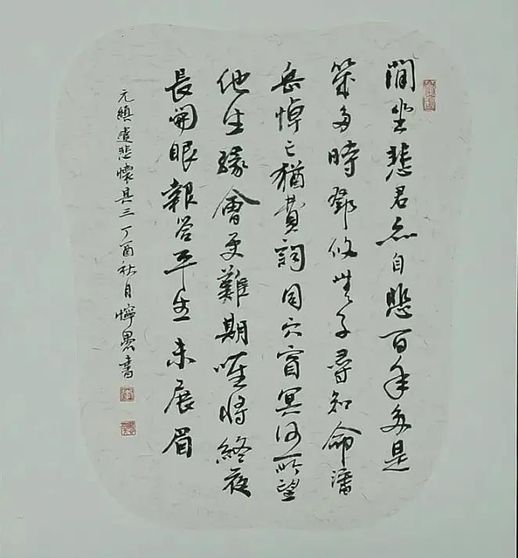 閒坐悲君亦自悲百年多是
幾多時鄧攸無子尋知命潘
岳悼亡猶費詞同穴窅冥何所望
他生緣會更難期唯將終夜
長開眼報答平生未展眉
元稹遣悲懷其三丁酉秋月愚書